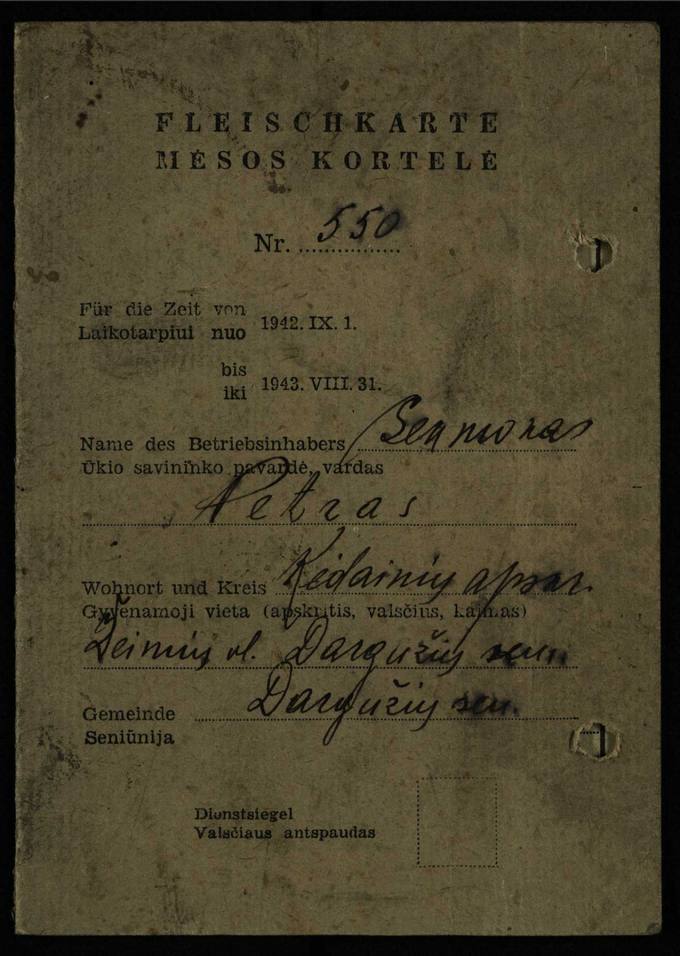 FLEISCHKARTE
MĖSOS KORTELĖ
Nr. 550
Für die Zeit von
Laikotarpiui nuo 1942. IX. 1.
bis
iki 1943. VIII. 31.
Name des Betriebsinhabers
Ūkio savininko pavardė, vardas
Petras
Wohnort und Kreis Kėdainių apskr.
Gyvenamoji vieta (apskritis, valsčius, kaimas)
vl. Dargužių sen.
Gemeinde Dargužių sen.
Seniūnija
Dienstsiegel
Valsčiaus antspaudas